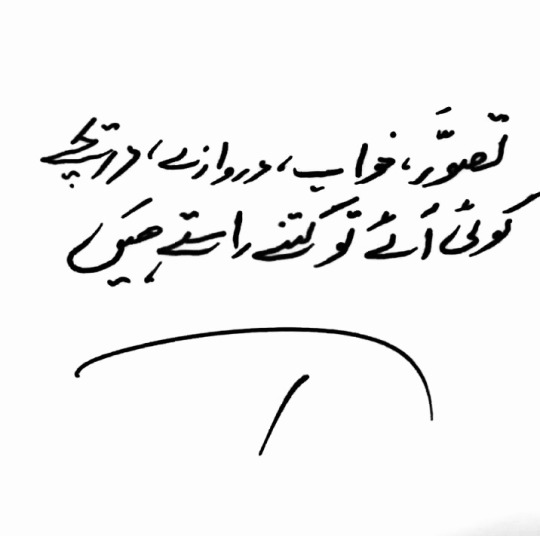 تصوّر، خواب، دروازے، دریچے
کوئی آئے تو کتنے راستے ہیں